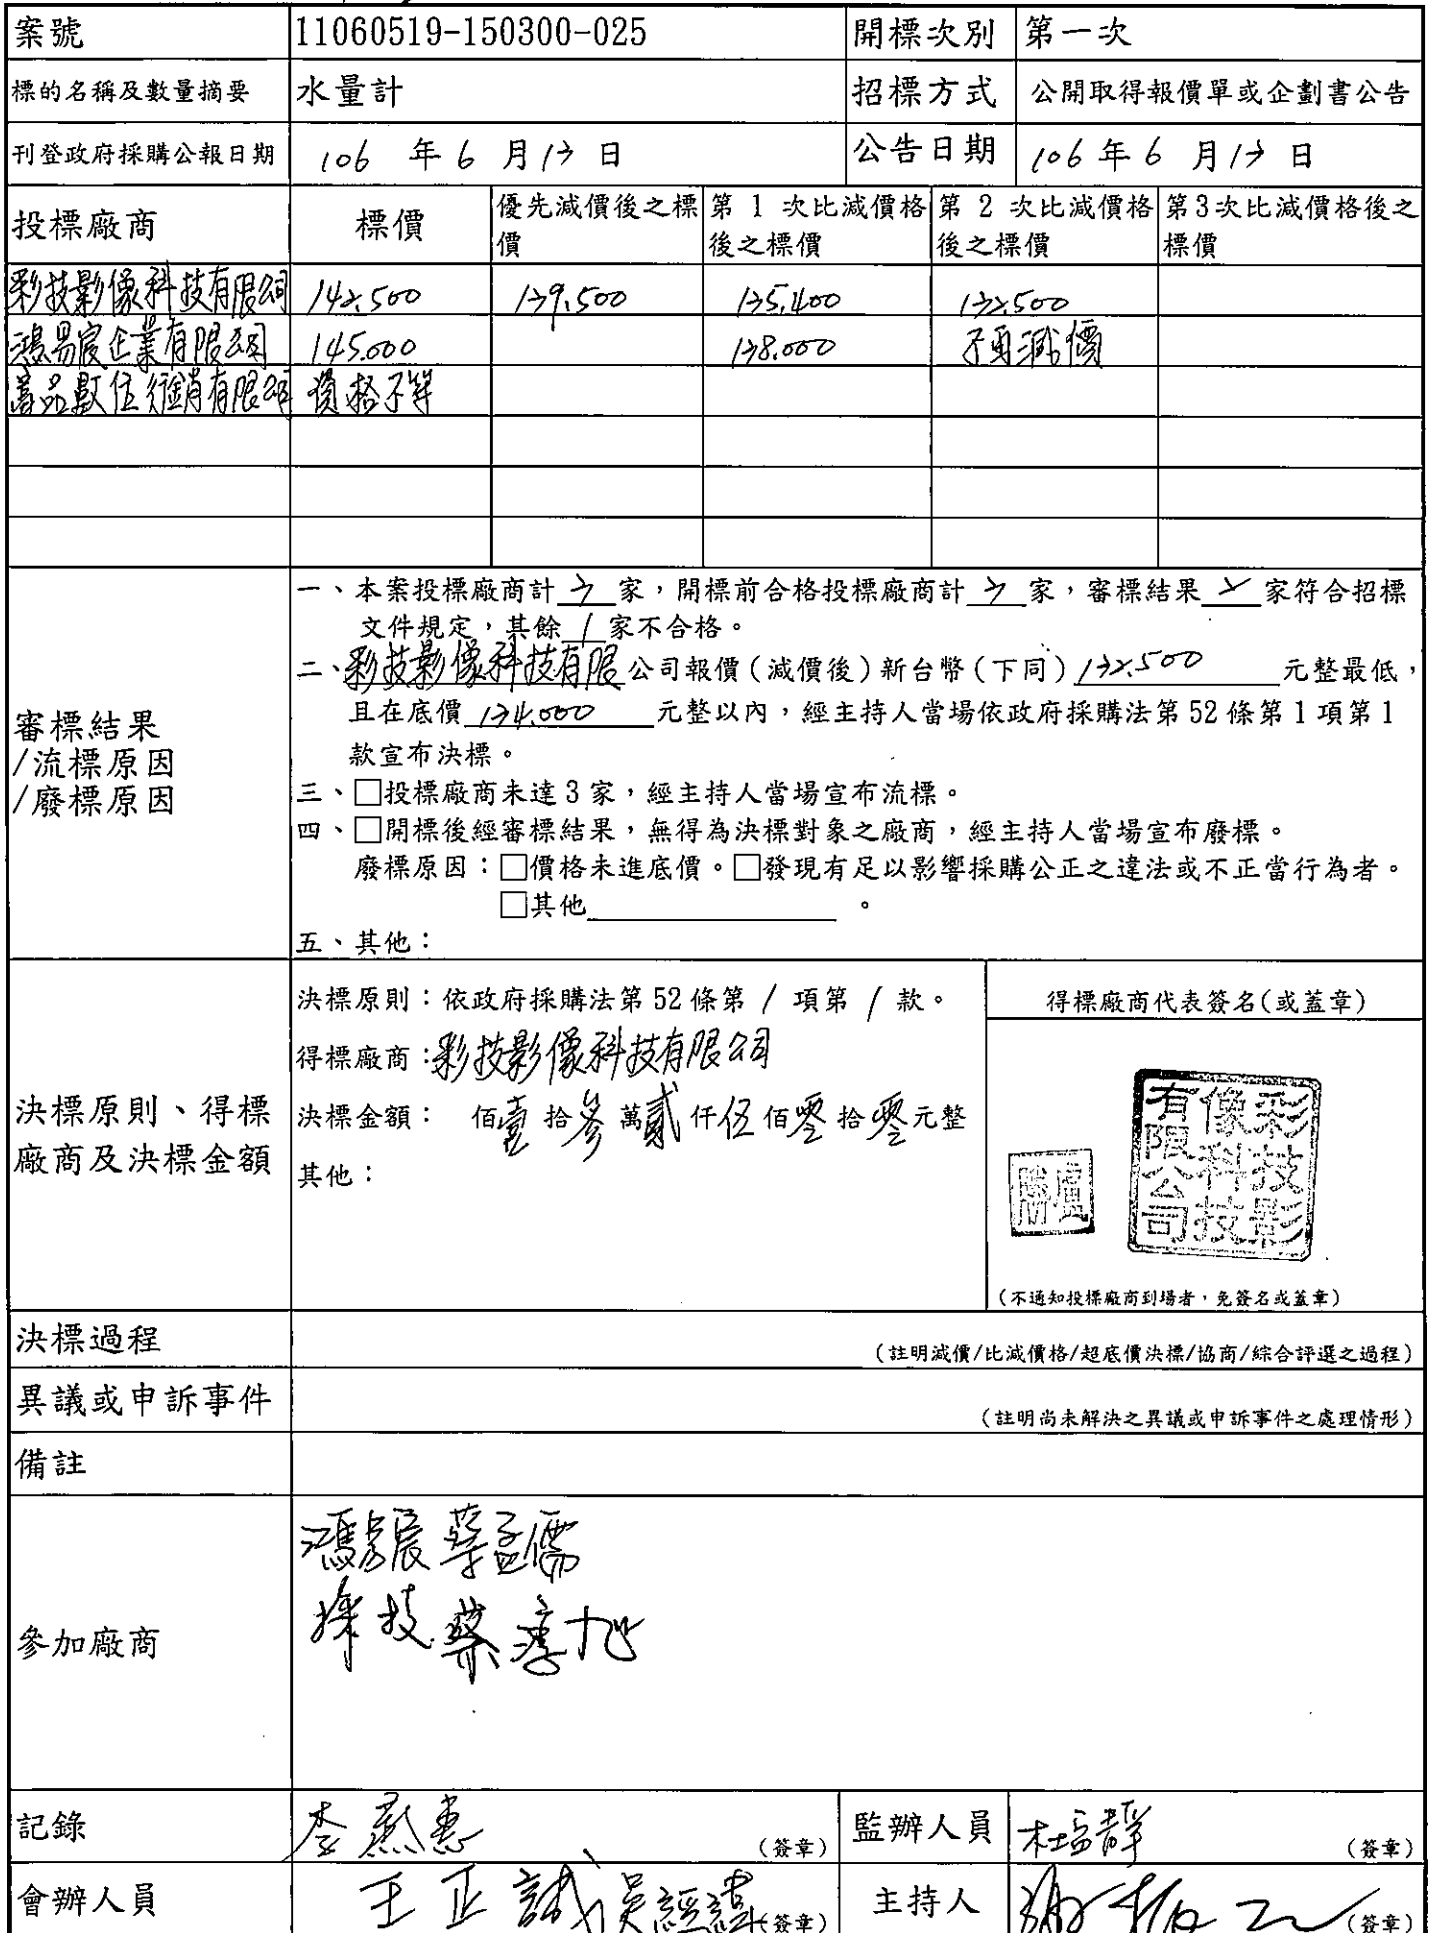 案號 11060519-150300-025 開標次別 第一次
標的名稱及數量摘要 水量計 招標方式 公開取得報價單或企劃書公告
刊登政府採購公報日期 106 年 6 月 13 日 公告日期 106 年 6 月 13 日
投標廠商 標價 優先減價後之標價 第 1 次比減價格後之標價 第 2 次比減價格後之標價 第3次比減價格後之標價
彩技影像科技有限公司 142.500 139.500 135.400 132.500
鴻易宸企業有限公司 145.000 138.000 不再減價
品數位行銷有限公司 資格不符
審標結果
/流標原因
/廢標原因
一、本案投標廠商計 3 家,開標前合格投標廠商計 3 家,審標結果 2 家符合招標
文件規定,其餘 1 家不合格。
二、彩技影像科技有限公司報價(減價後)新台幣(下同)132.500元整最低,
且在底價 134.000 元整以內,經主持人當場依政府採購法第 52 條第 1 項第 1
款宣布決標。
三、□投標廠商未達 3 家,經主持人當場宣布流標。
四、□開標後經審標結果,無得為決標對象之廠商,經主持人當場宣布廢標。
廢標原因:□價格未進底價。□發現有足以影響採購公正之違法或不正當行為者。
□其他 。
五、其他:
決標原則、得標
廠商及決標金額
決標原則:依政府採購法第 52 條第 1 項第 1 款。
得標廠商:彩技影像科技有限公司
決標金額: 佰壹拾參萬貳仟伍佰零拾零元整
其他:
得標廠商代表簽名(或蓋章)
彩技影像科技有限公司
(不通知投標廠商到場者,免簽名或蓋章)
決標過程 (註明減價/比減價格/超底價決標/協商/綜合評選之過程)
異議或申訴事件 (註明尚未解決之異議或申訴事件之處理情形)
備註
參加廠商
蔡孟儒
技 蔡淳旭
記錄 李燕惠 (簽章) 監辦人員 杜 靜 (簽章)
會辦人員 王正誠 吳經緯 (簽章) 主持人 (簽章)